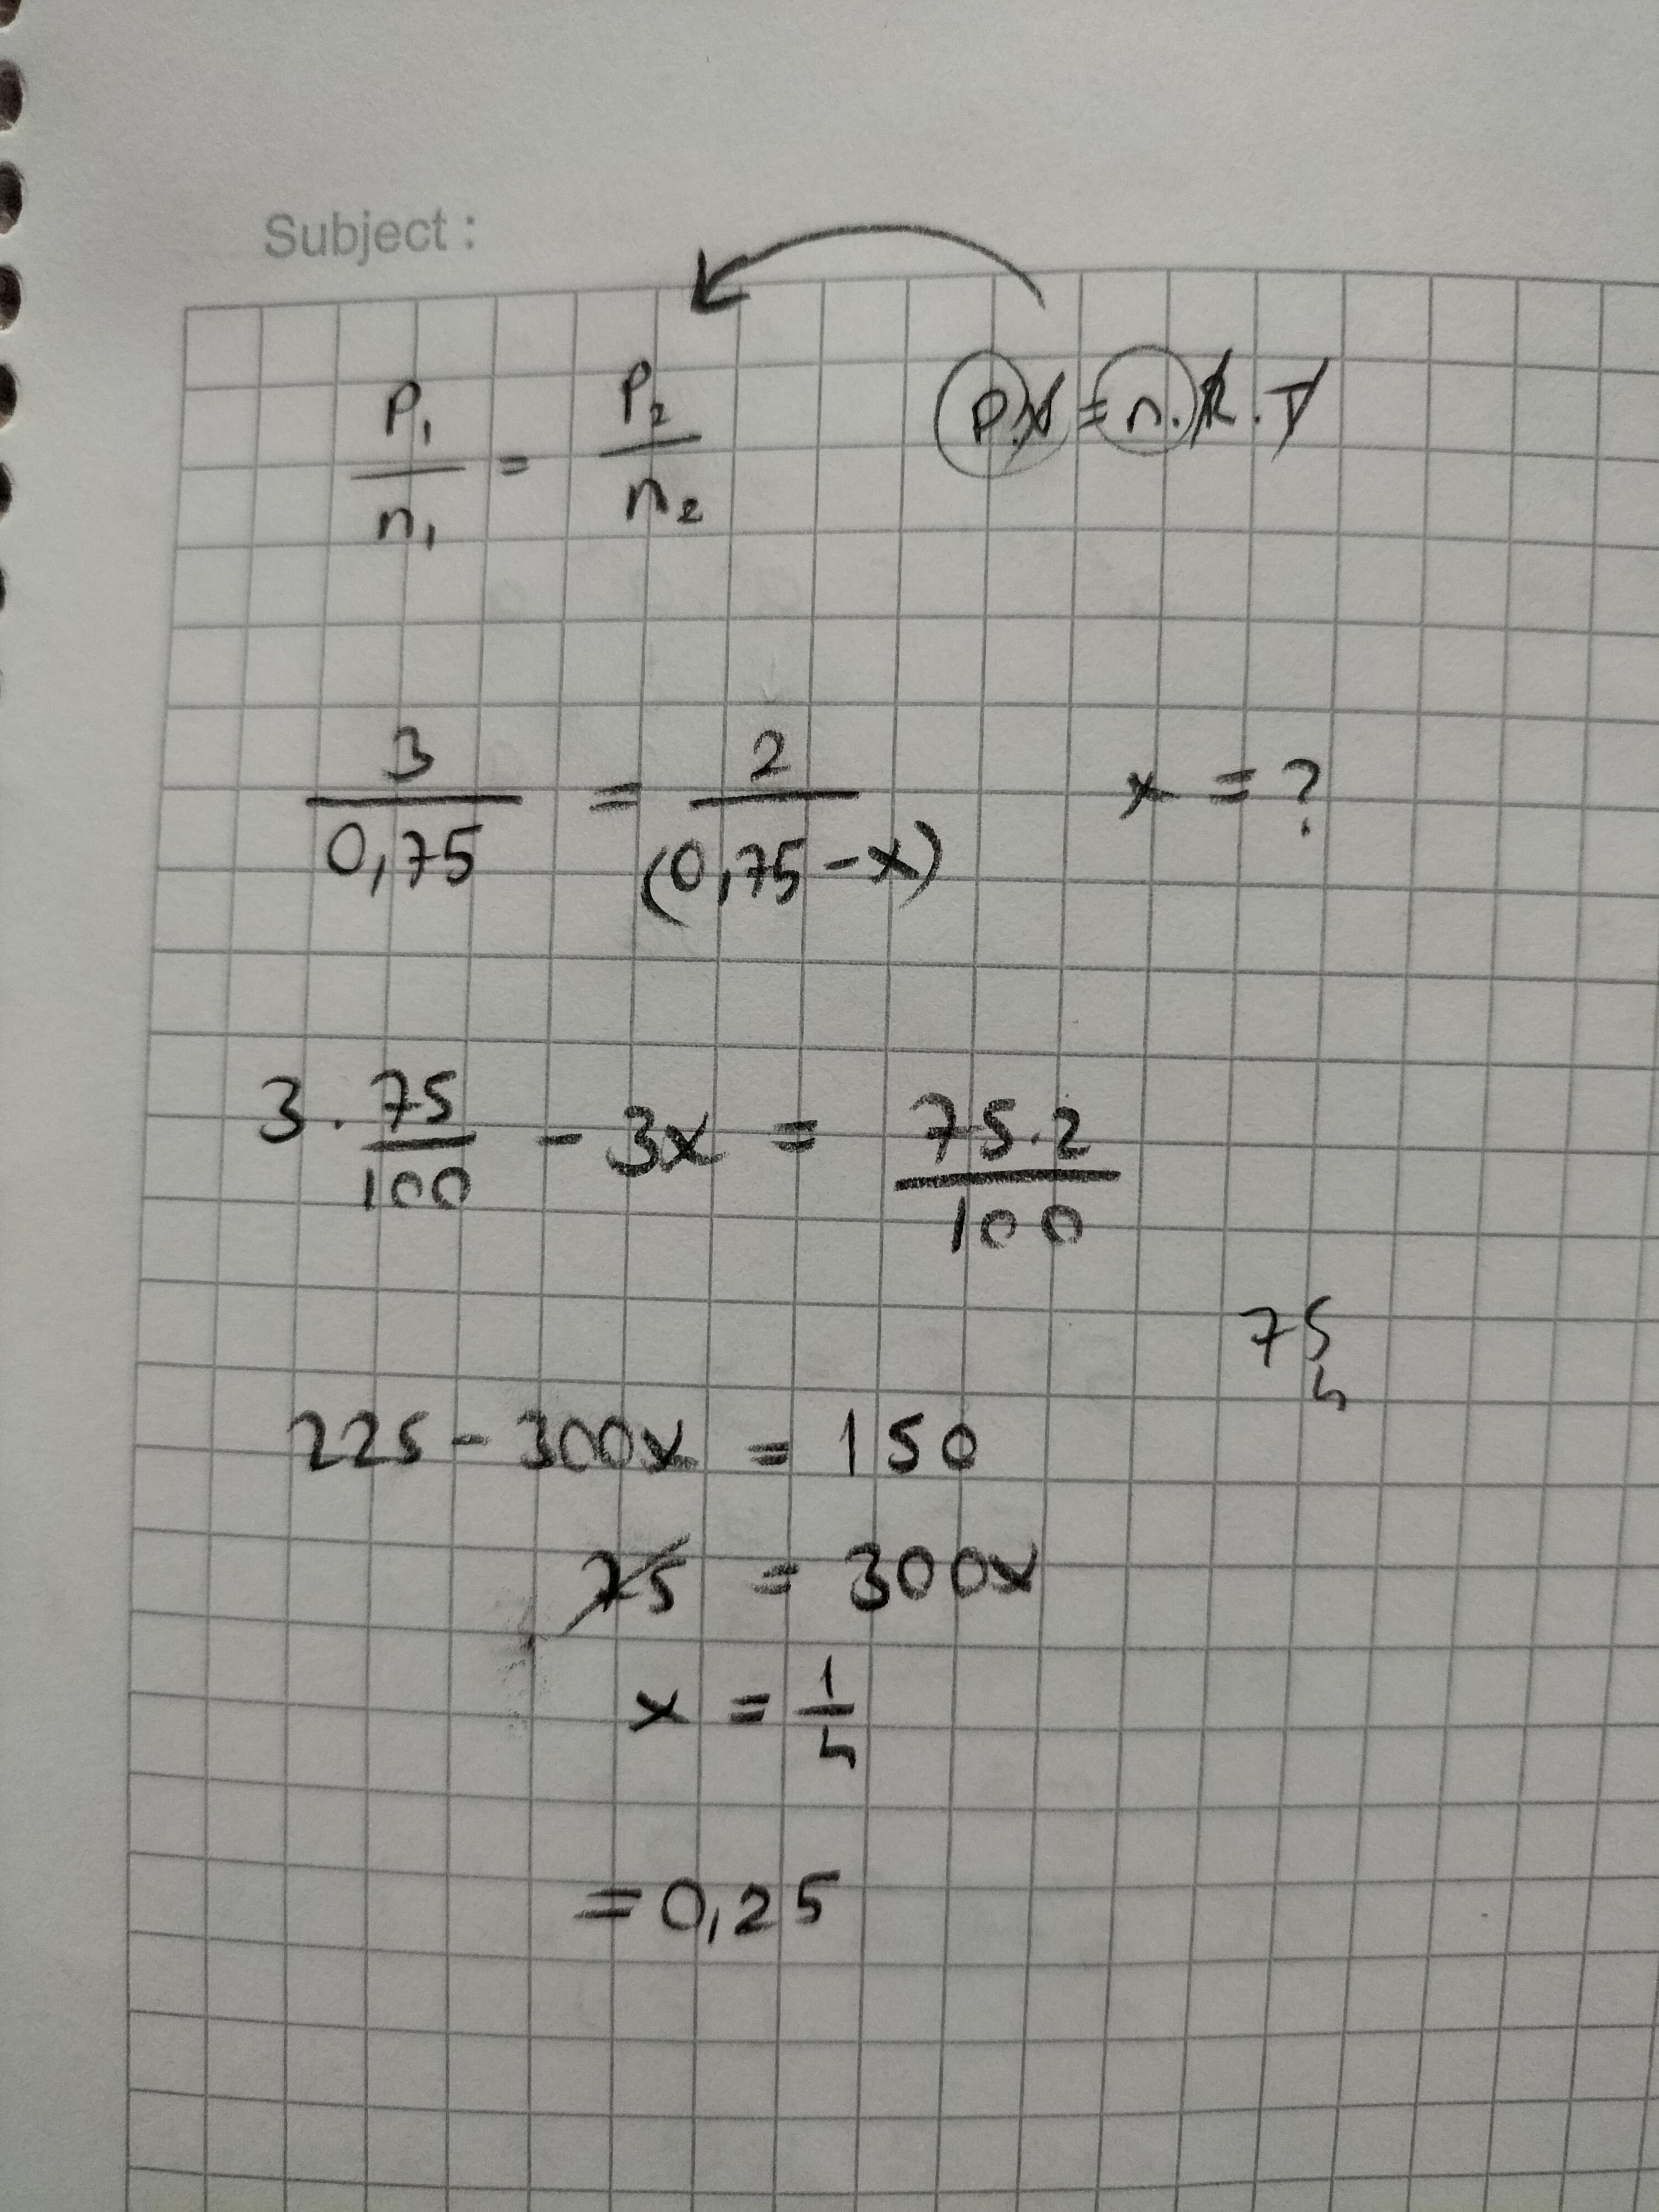 Subject :
P₁/n₁ = P₂/n₂ P.V = n.R.T
3/0,75 = 2/(0,75-x) x = ?
3 . 75/100 - 3x = 75.2/100
75
4
225 - 300x = 150
75 = 300x
x = 1/4
= 0,25